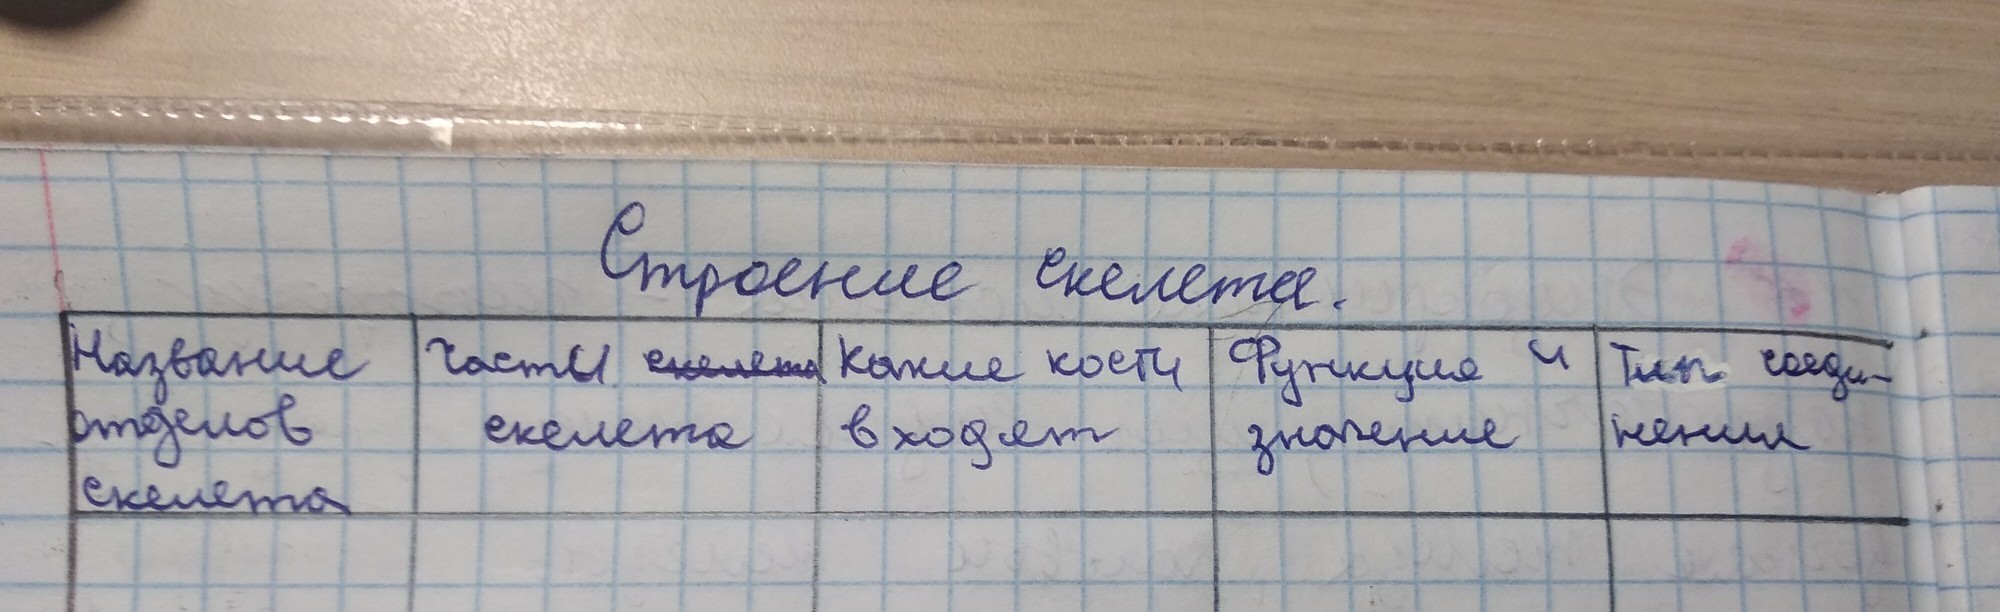 Строение скелета.
Название отделов скелета
Часты скелета скелета
Какие кости входят
Функция и значение
Тип соеди-
нения